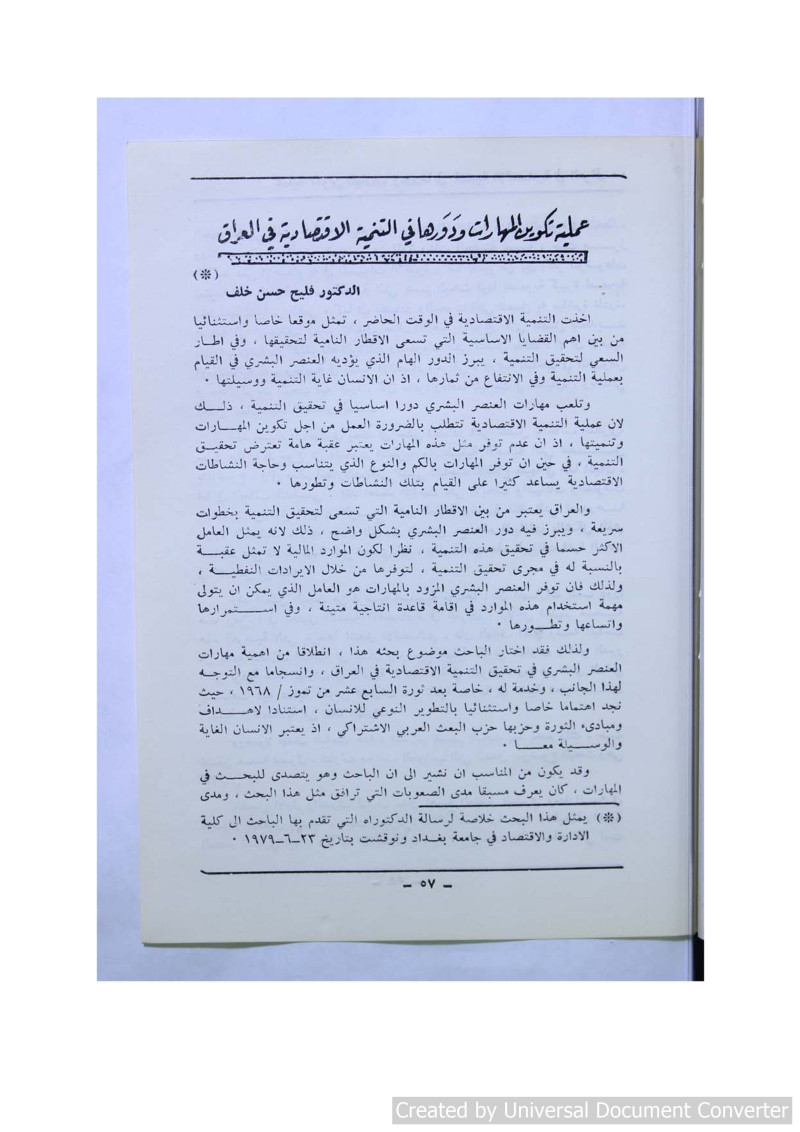 عملية تكوين المهارات ودورها في التنمية الاقتصادية في العراق
(※)
الدكتور فليح حسن خلف
اخذت التنمية الاقتصادية في الوقت الحاضر ، تمثل موقعا خاصا واستثنائيا
من بين اهم القضايا الاساسية التي تسعى الاقطار النامية لتحقيقها ، وفي اطـار
السعي لتحقيق التنمية ، يبرز الدور الهام الذي يؤديه العنصر البشري في القيام
بعملية التنمية وفي الانتفاع من ثمارها ، اذ ان الانسان غاية التنمية ووسيلتها ٠
وتلعب مهارات العنصر البشري دورا اساسيا في تحقيق التنمية ، ذلــك
لان عملية التنمية الاقتصادية تتطلب بالضرورة العمل من اجل تكوين المهــارات
وتنميتها ، اذ ان عدم توفر مثل هذه المهارات يعتبر عقبة هامة تعترض تحقيــق
التنمية ، في حين ان توفر المهارات بالكم والنوع الذي يتناسب وحاجة النشاطات
الاقتصادية يساعد كثيرا على القيام بتلك النشاطات وتطورها ٠
والعراق يعتبر من بين الاقطار النامية التي تسعى لتحقيق التنمية بخطوات
سريعة ، ويبرز فيه دور العنصر البشري بشكل واضح ، ذلك لانه يمثل العامل
الاكثر حسما في تحقيق هذه التنمية ، نظرا لكون الموارد المالية لا تمثل عقبــة
بالنسبة له في مجرى تحقيق التنمية ، لتوفرها من خلال الايرادات النفطيــة ،
ولذلك فان توفر العنصر البشري المزود بالمهارات هو العامل الذي يمكن ان يتولى
مهمة استخدام هذه الموارد في اقامة قاعدة انتاجية متينة ، وفي اســـتمرارها
واتساعها وتطــورها ٠
ولذلك فقد اختار الباحث موضوع بحثه هذا ، انطلاقا من اهمية مهارات
العنصر البشري في تحقيق التنمية الاقتصادية في العراق ، وانسجاما مع التوجـه
لهذا الجانب ، وخدمة له ، خاصة بعد ثورة السابع عشر من تموز / ١٩٦٨ ، حيث
نجد اهتماما خاصا واستثنائيا بالتطوير النوعي للانسان ، استنادا لاهــداف
ومبادىء الثورة وحزبها حزب البعث العربي الاشتراكي ، اذ يعتبر الانسان الغاية
والوســيلة معــا ٠
وقد يكون من المناسب ان نشير الى ان الباحث وهو يتصدى للبحــث في
المهارات ، كان يعرف مسبقا مدى الصعوبات التي ترافق مثل هذا البحث ، ومدى
(※) يمثل هذا البحث خلاصة لرسالة الدكتوراه التي تقدم بها الباحث الى كلية
الادارة والاقتصاد في جامعة بغـداد ونوقشت بتاريخ ٢٣ــ٦ــ١٩٧٩ ٠
ــ ٥٧ ــ
Created by Universal Document Converter